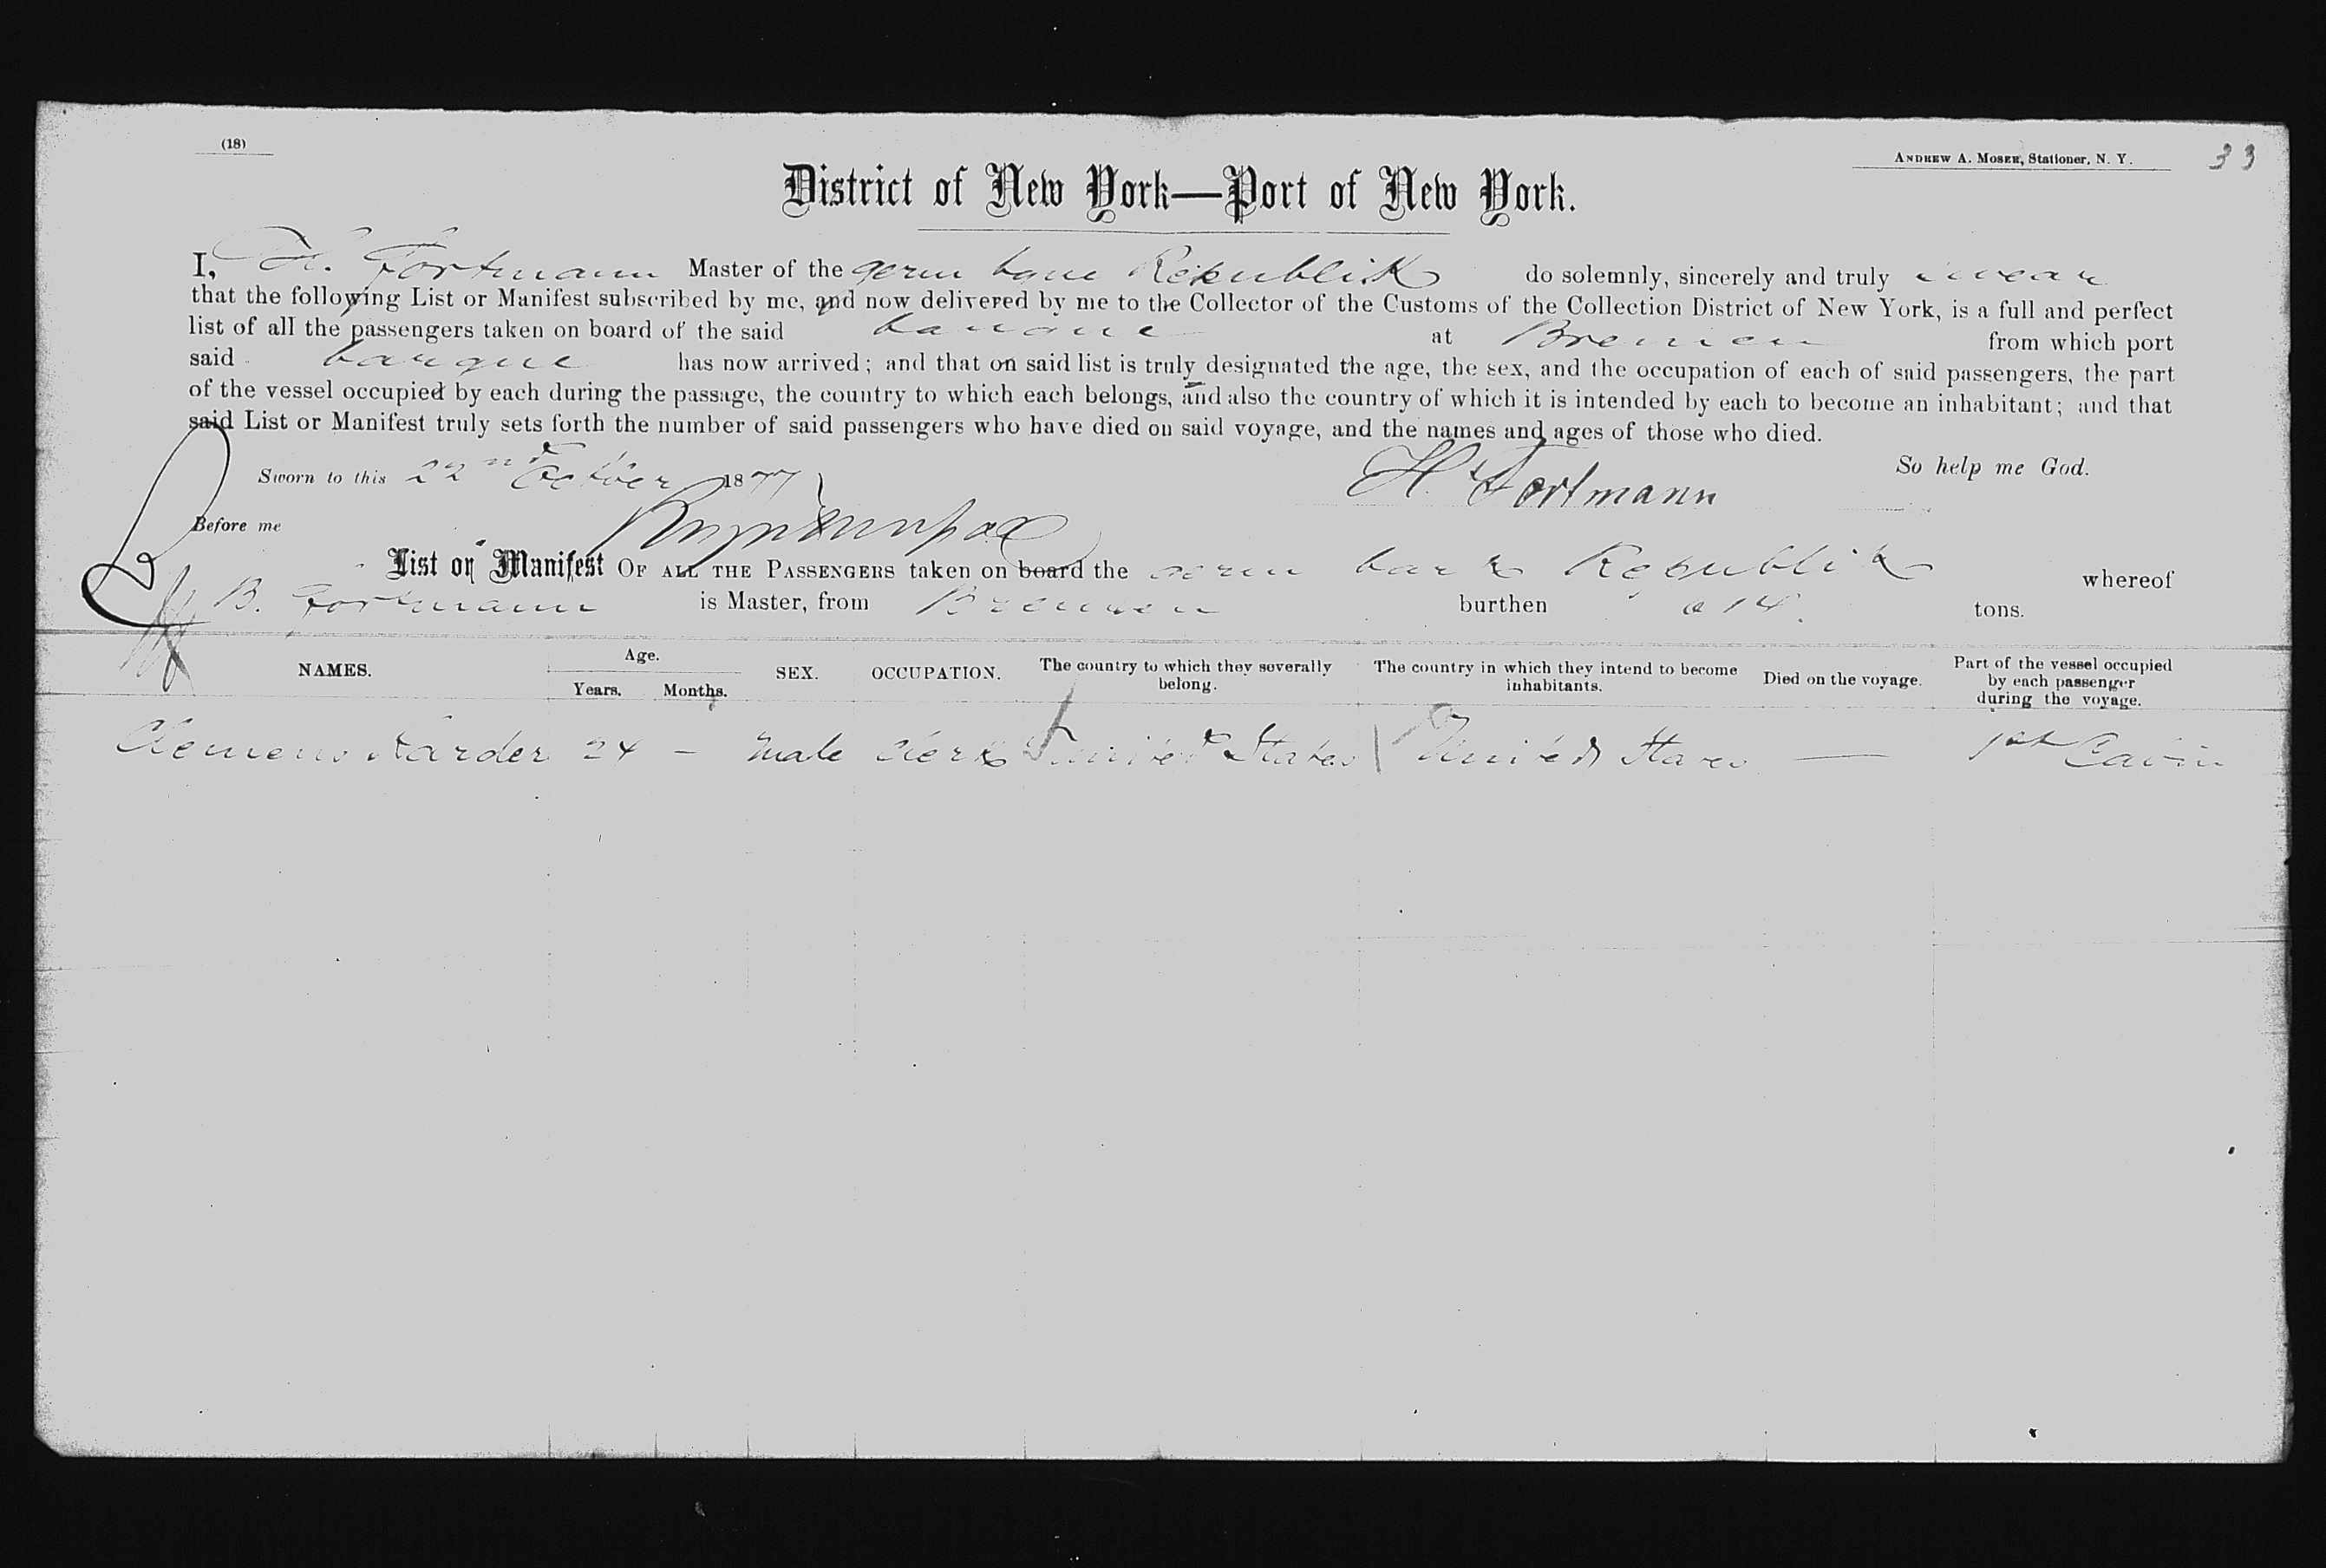 (18)
ANDREW A. MOSER, Stationer, N. Y. 33
District of New York—Port of New York.
I, H. Fortmann Master of the germ bque Republik do solemnly, sincerely and truly swear
that the following List or Manifest subscribed by me, and now delivered by me to the Collector of the Customs of the Collection District of New York, is a full and perfect
list of all the passengers taken on board of the said barque at Bremen from which port
said barque has now arrived; and that on said list is truly designated the age, the sex, and the occupation of each of said passengers, the part
of the vessel occupied by each during the passage, the country to which each belongs, and also the country of which it is intended by each to become an inhabitant; and that
said List or Manifest truly sets forth the number of said passengers who have died on said voyage, and the names and ages of those who died.
So help me God.
Sworn to this 22nd October 1877
H. Fortmann
Before me
List or Manifest OF ALL THE PASSENGERS taken on board the germ bark Republik whereof
Fortmann is Master, from Bremen burthen tons.
NAMES. Age. Years. Months. SEX. OCCUPATION. The country to which they severally belong. The country in which they intend to become inhabitants. Died on the voyage. Part of the vessel occupied by each passenger during the voyage.
Clemens Harder 24 – male clerk United States United States — 1st Cabin